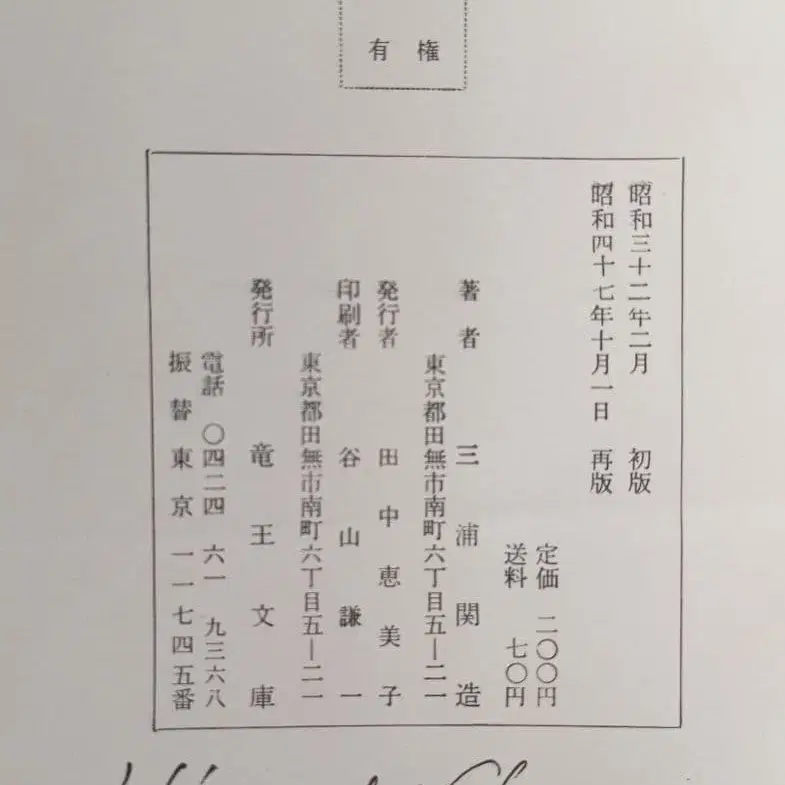 有権
昭和三十二年二月 初版
昭和四十七年十月一日 再版
定価 二〇〇円
送料 七〇円
著者 三浦関造
東京都田無市南町六丁目五―二一
発行者 田中恵美子
印刷者 谷山謙一
東京都田無市南町六丁目五―二一
発行所 竜王文庫
電話 〇四二四 六一 九三六八
振替東京一一七四五番